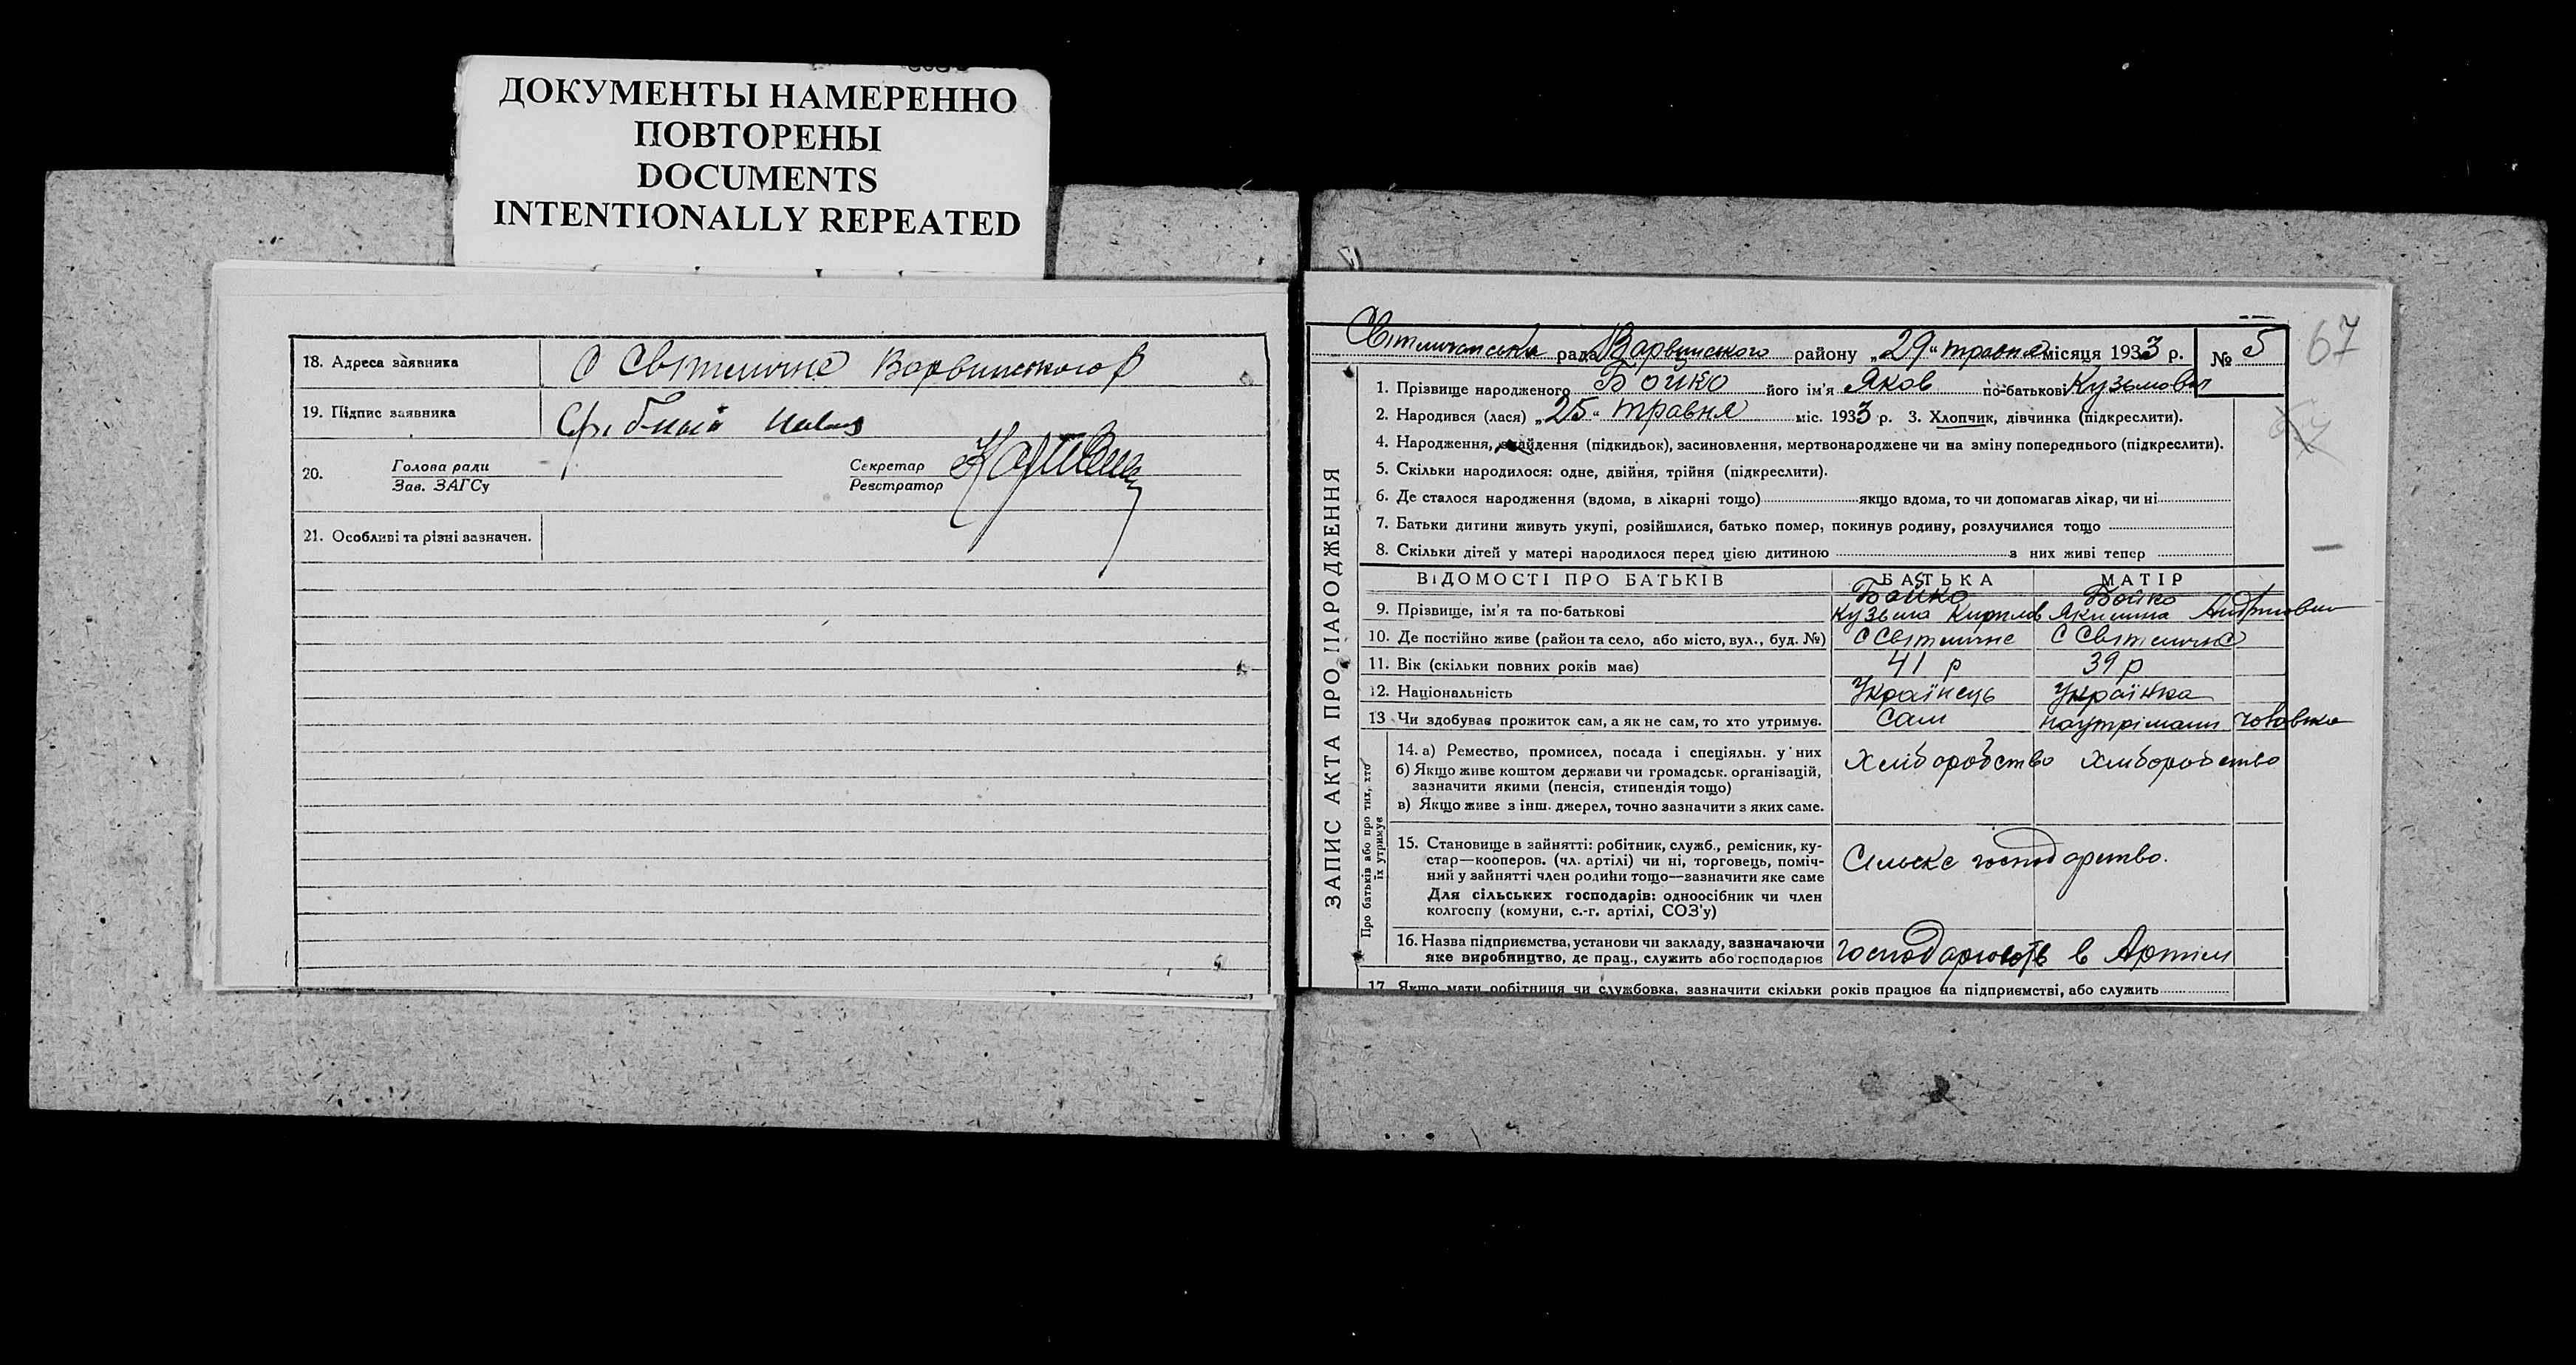 ДОКУМЕНТЫ НАМЕРЕННО
ПОВТОРЕНЫ
DOCUMENTS
INTENTIONALLY REPEATED
18. Адреса заявника С Світличне Варвинского р
19. Підпис заявника Срібний
20. Голова ради
Зав. ЗАГСу
Секретар
Реєстратор
21. Особливі та різні зазначен.
67
Світличанська рада Варвинського району „29“ травня місяця 1933 р. № 5
ЗАПИС АКТА ПРО НАРОДЖЕННЯ
1. Прізвище народженого Бойко його ім'я Яков по-батькові Кузьмович
2. Народився (лася) „25“ травня міс. 1933 р. 3. Хлопчик, дівчинка (підкреслити).
4. Народження, знайдення (підкидьок), засиновлення, мертвонароджене чи на зміну попереднього (підкреслити).
5. Скільки народилося: одне, двійня, трійня (підкреслити).
6. Де сталося народження (вдома, в лікарні тощо) якщо вдома, то чи допомагав лікар, чи ні
7. Батьки дитини живуть укупі, розійшлися, батько помер, покинув родину, розлучилися тощо
8. Скільки дітей у матері народилося перед цією дитиною з них живі тепер
ВІДОМОСТІ ПРО БАТЬКІВ БАТЬКА МАТІР
Бойко Бойко
9. Прізвище, ім'я та по-батькові Кузьма Кирилов Якилина
10. Де постійно живе (район та село, або місто, вул., буд. №) С Світличне С Світличне
11. Вік (скільки повних років має) 41 р 39 р
12. Національність Українець Українка
13 Чи здобуває прожиток сам, а як не сам, то хто утримує. Сам наутрімани чоловіка
Про батьків або про тих, хто
їх утримує
14. а) Ремество, промисел, посада і спеціяльн. у них Хліборобство Хліборобство
б) Якщо живе коштом держави чи громадськ. організацій,
зазначити якими (пенсія, стипендія тощо)
в) Якщо живе з інш. джерел, точно зазначити з яких саме.
15. Становище в зайнятті: робітник, служб., ремісник, ку-
стар—кооперов. (чл. артілі) чи ні, торговець, поміч-
ний у зайнятті член родини тощо—зазначити яке саме
Сільске господарство.
Для сільських господарів: одноосібник чи член
колгоспу (комуни, с.-г. артілі, СОЗ'у)
16. Назва підприємства, установи чи закладу, зазначаючи
яке виробництво, де прац., служить або господарює в Артіли
17. Якщо мати робітниця чи службовка, зазначити скільки років працює на підприємстві, або служить